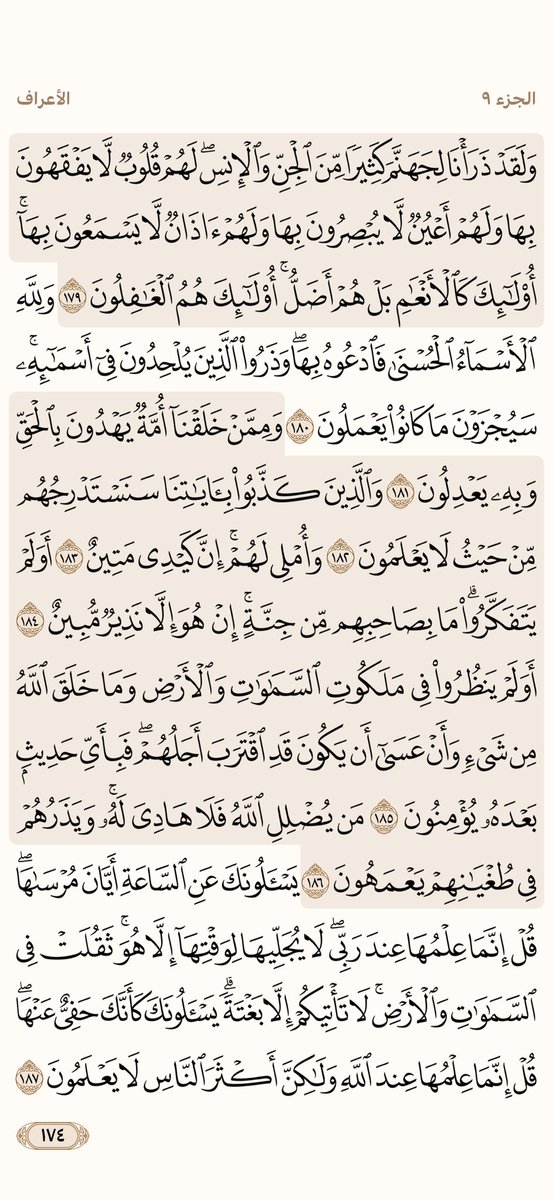 الجزء ٩
الأعراف
وَلَقَدۡ ذَرَأۡنَا لِجَهَنَّمَ كَثِيرٗا مِّنَ ٱلۡجِنِّ وَٱلۡإِنسِۖ لَهُمۡ قُلُوبٞ لَّا يَفۡقَهُونَ
بِهَا وَلَهُمۡ أَعۡيُنٞ لَّا يُبۡصِرُونَ بِهَا وَلَهُمۡ ءَاذَانٞ لَّا يَسۡمَعُونَ بِهَآۚ
أُوْلَٰٓئِكَ كَٱلۡأَنۡعَٰمِ بَلۡ هُمۡ أَضَلُّۚ أُوْلَٰٓئِكَ هُمُ ٱلۡغَٰفِلُونَ ١٧٩ وَلِلَّهِ
ٱلۡأَسۡمَآءُ ٱلۡحُسۡنَىٰ فَٱدۡعُوهُ بِهَاۖ وَذَرُواْ ٱلَّذِينَ يُلۡحِدُونَ فِيٓ أَسۡمَٰٓئِهِۦۚ
سَيُجۡزَوۡنَ مَا كَانُواْ يَعۡمَلُونَ ١٨٠ وَمِمَّنۡ خَلَقۡنَآ أُمَّةٞ يَهۡدُونَ بِٱلۡحَقِّ
وَبِهِۦ يَعۡدِلُونَ ١٨١ وَٱلَّذِينَ كَذَّبُواْ بِـَٔايَٰتِنَا سَنَسۡتَدۡرِجُهُم
مِّنۡ حَيۡثُ لَا يَعۡلَمُونَ ١٨٢ وَأُمۡلِي لَهُمۡۚ إِنَّ كَيۡدِي مَتِينٌ ١٨٣ أَوَلَمۡ
يَتَفَكَّرُواْۗ مَا بِصَاحِبِهِم مِّن جِنَّةٍۚ إِنۡ هُوَ إِلَّا نَذِيرٞ مُّبِينٌ ١٨٤
أَوَلَمۡ يَنظُرُواْ فِي مَلَكُوتِ ٱلسَّمَٰوَٰتِ وَٱلۡأَرۡضِ وَمَا خَلَقَ ٱللَّهُ
مِن شَيۡءٖ وَأَنۡ عَسَىٰٓ أَن يَكُونَ قَدِ ٱقۡتَرَبَ أَجَلُهُمۡۖ فَبِأَيِّ حَدِيثِۭ
بَعۡدَهُۥ يُؤۡمِنُونَ ١٨٥ مَن يُضۡلِلِ ٱللَّهُ فَلَا هَادِيَ لَهُۥۚ وَيَذَرُهُمۡ
فِي طُغۡيَٰنِهِمۡ يَعۡمَهُونَ ١٨٦ يَسۡـَٔلُونَكَ عَنِ ٱلسَّاعَةِ أَيَّانَ مُرۡسَىٰهَاۖ
قُلۡ إِنَّمَا عِلۡمُهَا عِندَ رَبِّيۖ لَا يُجَلِّيهَا لِوَقۡتِهَآ إِلَّا هُوَۚ ثَقُلَتۡ فِي
ٱلسَّمَٰوَٰتِ وَٱلۡأَرۡضِۚ لَا تَأۡتِيكُمۡ إِلَّا بَغۡتَةٗۗ يَسۡـَٔلُونَكَ كَأَنَّكَ حَفِيٌّ عَنۡهَاۖ
قُلۡ إِنَّمَا عِلۡمُهَا عِندَ ٱللَّهِ وَلَٰكِنَّ أَكۡثَرَ ٱلنَّاسِ لَا يَعۡلَمُونَ ١٨٧
١٧٤